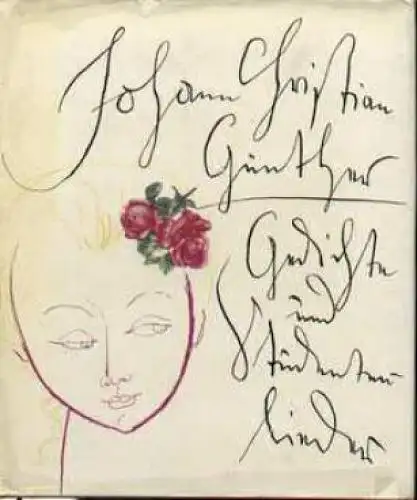 Johann Christian
Günther
Gedichte
und
Studenten
lieder